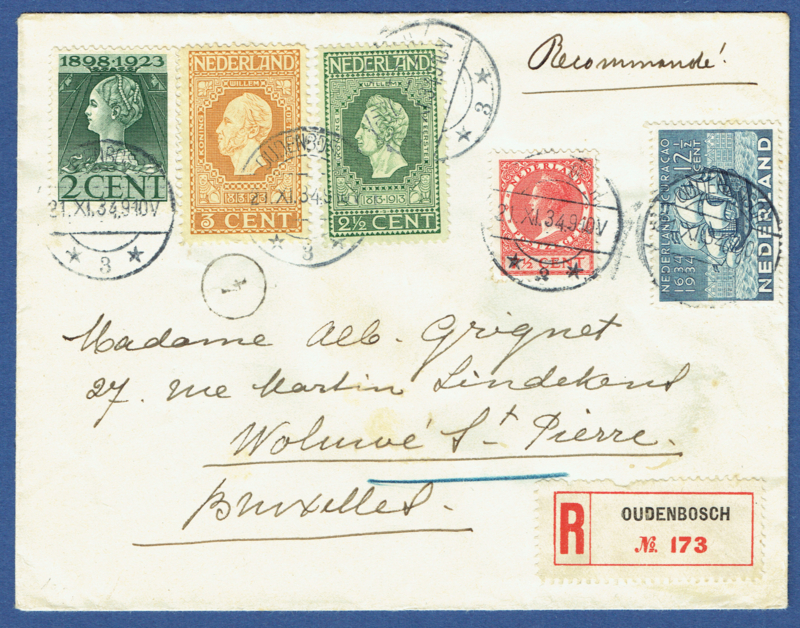 1898·1923
2 CENT
NEDERLAND
1813-1913
3 CENT
NEDERLAND
1813-1913
2½ CENT
Recommandé!
NEDERLAND
CENT
NEDERLAND CURAÇAO
1634 1934
12½ CENT
NEDERLAND
21.XI.34.9-10V
3
OUDENBOSCH
21.XI.34.9-10V
3
3
21.XI.34.9-10V
3
4
Madame Alb. Grignet
27, rue Martin Lindekens
Woluwé St Pierre.
Bruxelles.
R
OUDENBOSCH
№ 173